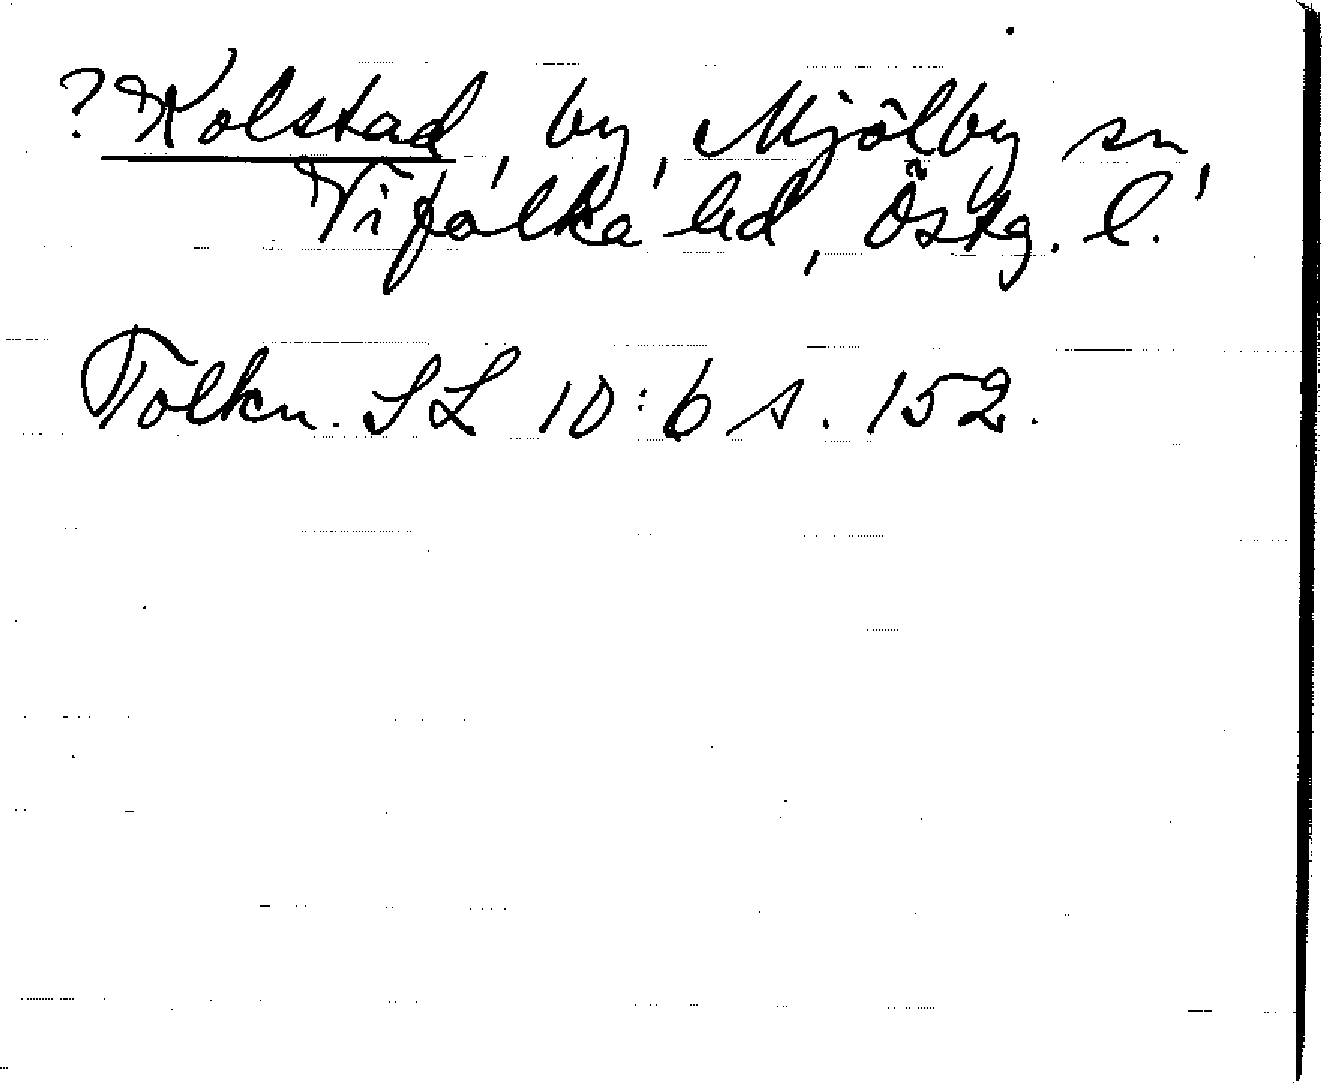 ? Kolstad, by, Mjölby sn,
Vifolka hd, Östg. l.
Tolkn. SL 10:6 s. 152.